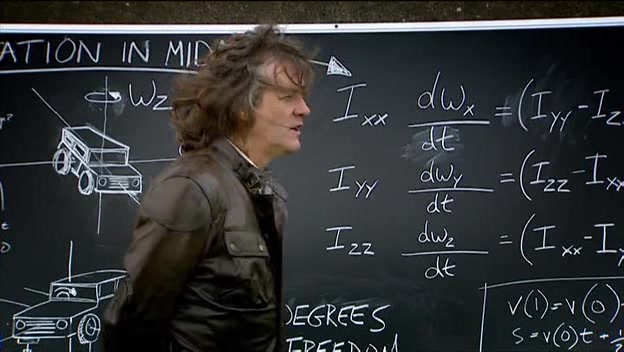 ATION IN MID
Wz
Ixx dωx/dt = (Iyy - Iz
Iyy dωy/dt = (Izz - Ixx
Izz dωz/dt = (Ixx - Iy
DEGREES
FREEDOM
v(1) = v(0)
s = v(0)t + 1/2